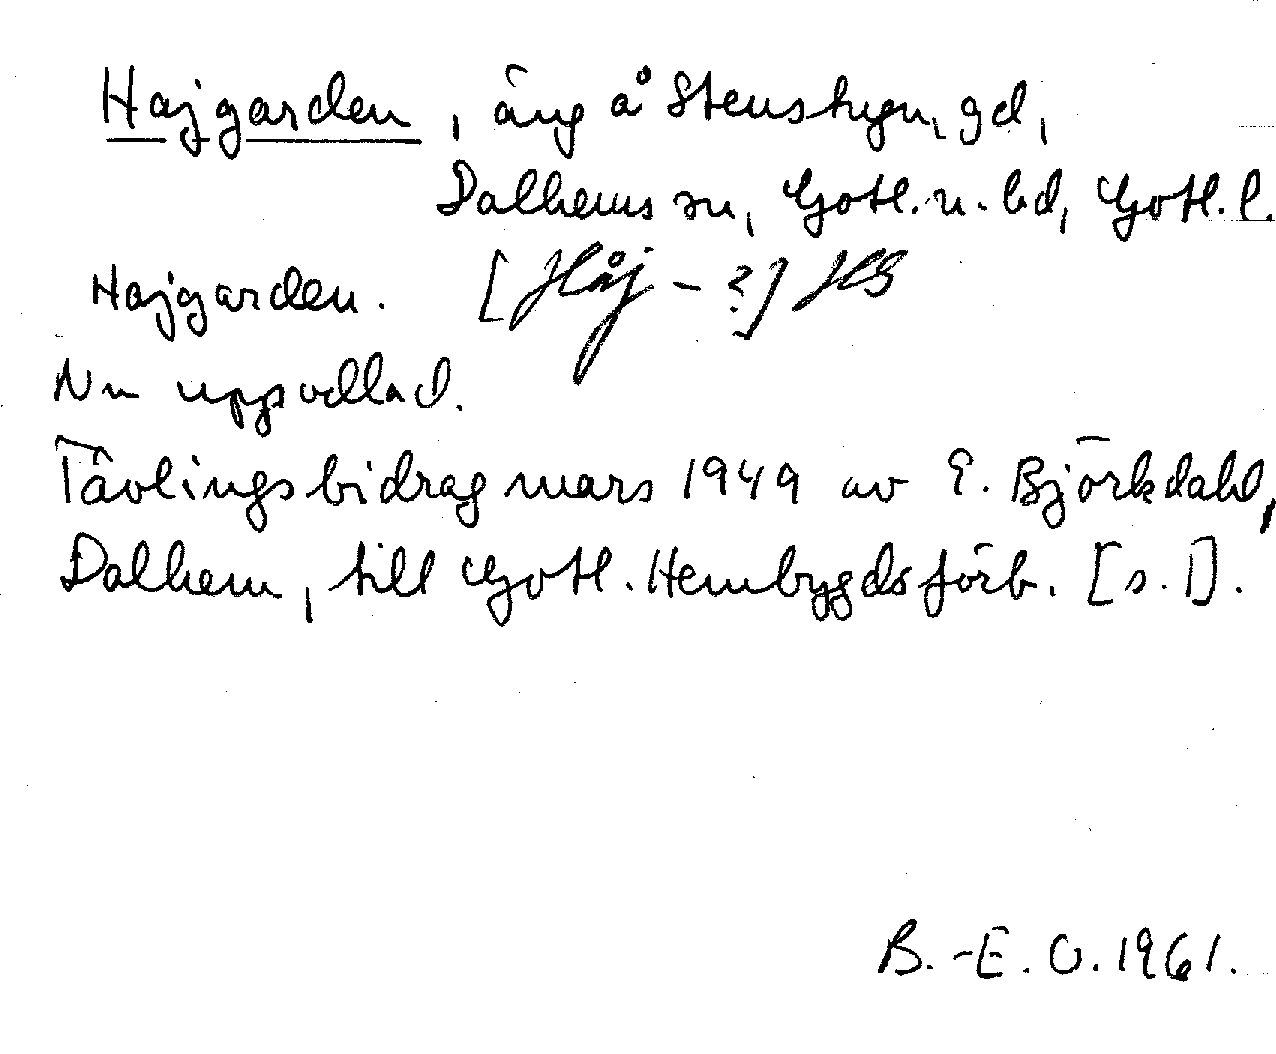 Hajgarden, äng å Stenstugu, gd,
Dalhems sn, Gotl. n. hd, Gotl. l.
Hajgarden. [Håj - ?] HG
Nu uppodlad.
Tävlingsbidrag mars 1949 av E. Björkdahl,
Dalhem, till Gotl. Hembygdsförb. [s. 1].
B.-E. O. 1961.